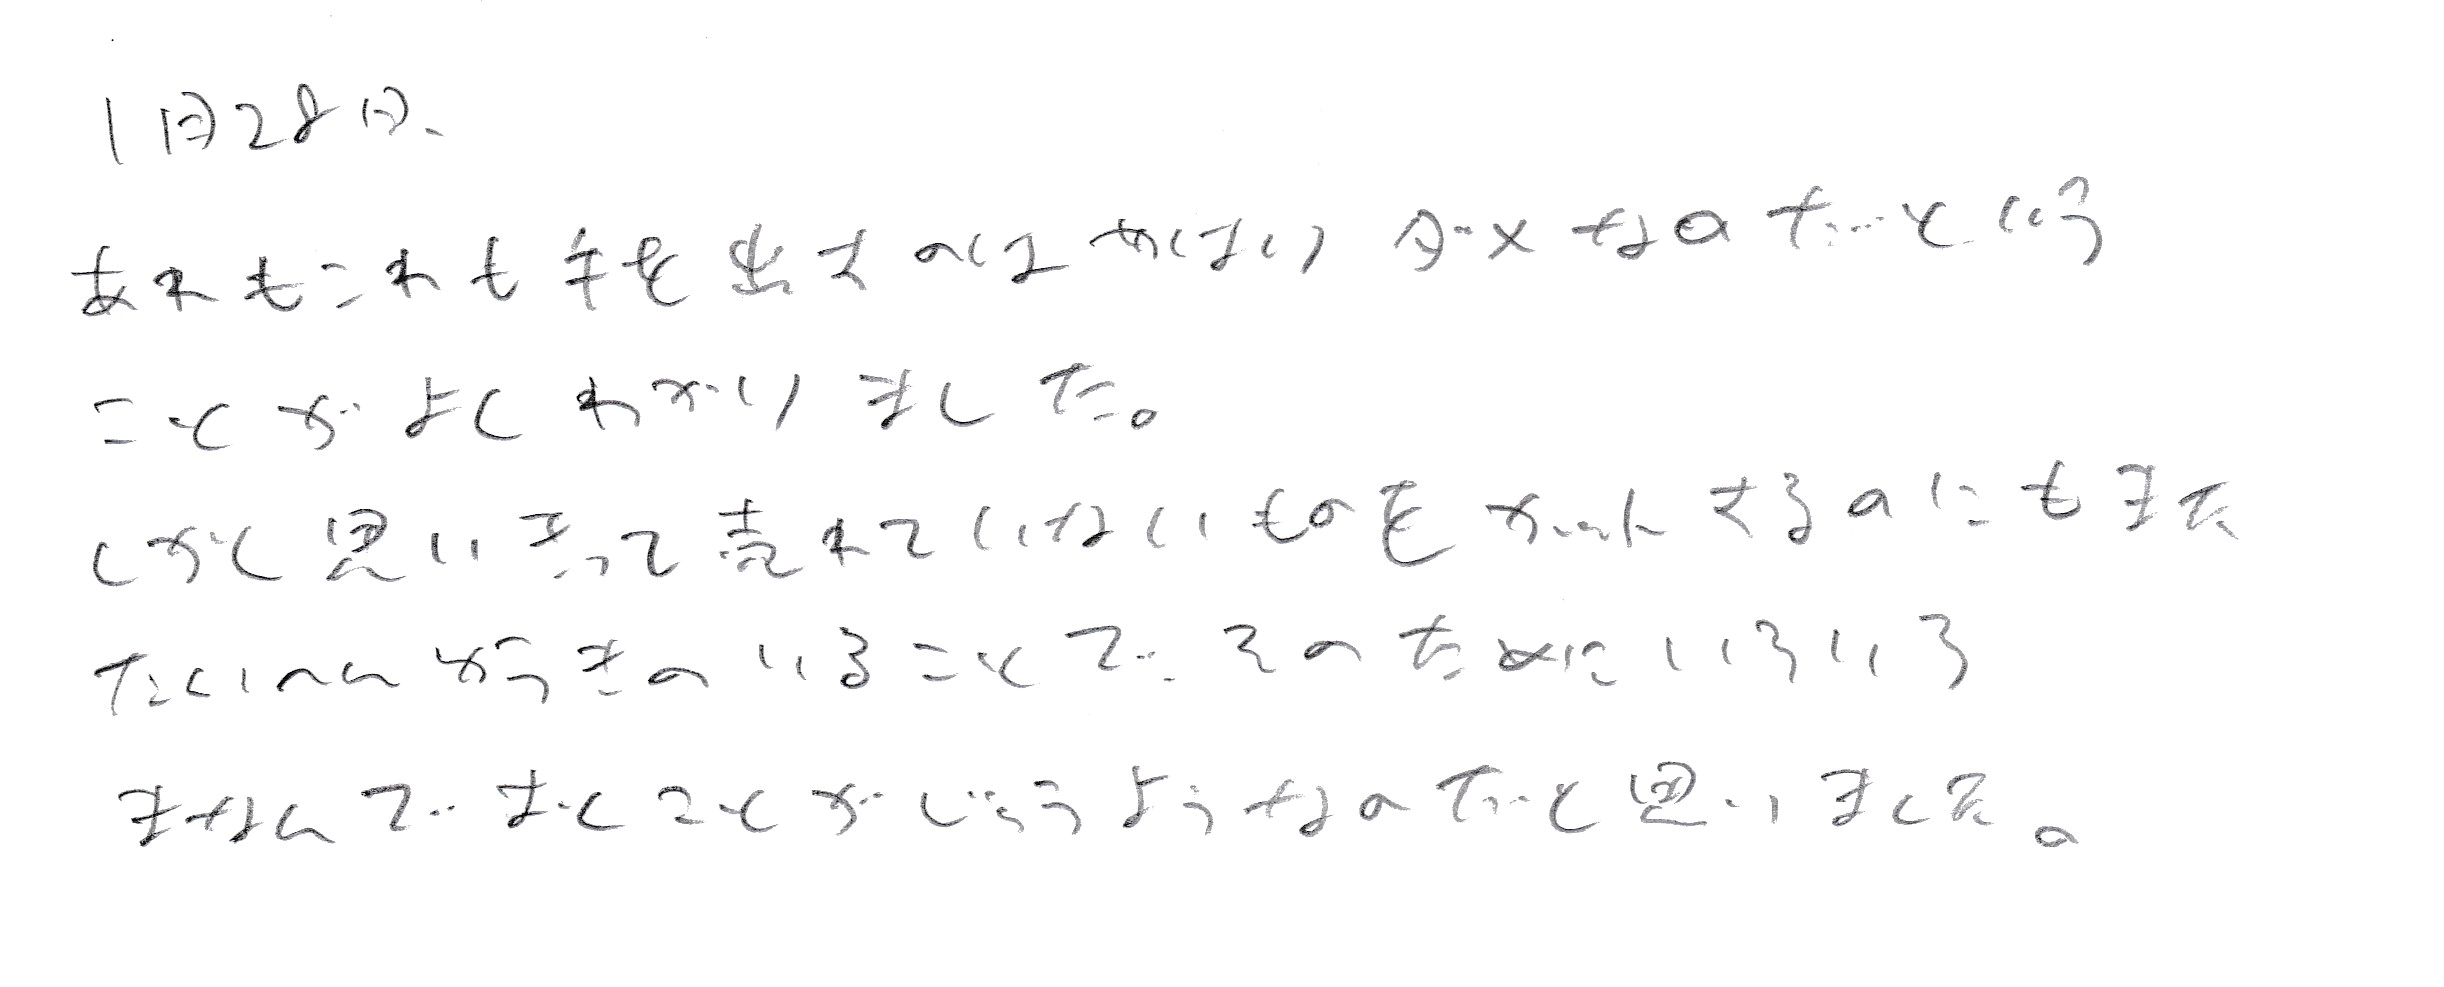 1月28日、
あれもこれも手を出すのはやはりダメなのだという
ことがよくわかりました。
しかし思いきって売れていないものをカットするのにもまた
たいへんゆうきのいることで、そのためにいろいろ
まなんでおくことがじゅうようなのだと思いました。